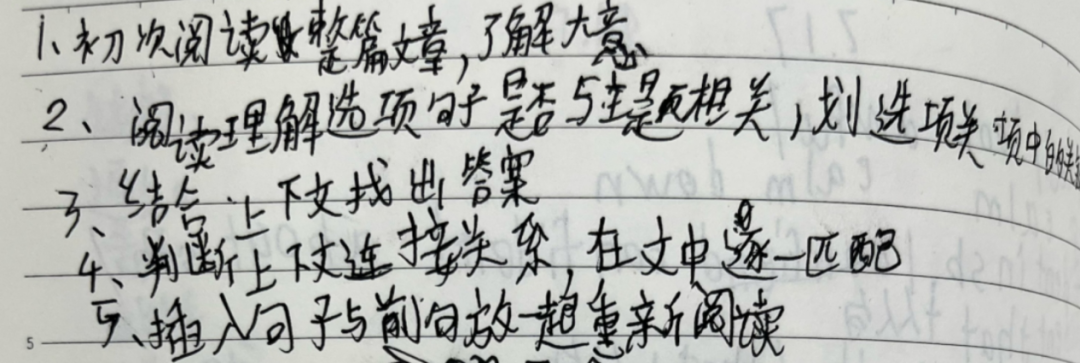 1、初次阅读整篇文章,了解大意
2、阅读理解选项句子是否与主题相关,划选项关项中的关
3、结合上下文找出答案
4、判断上下文连接关系,在文中逐一匹配
5、插入句子与前句放一起重新阅读
5